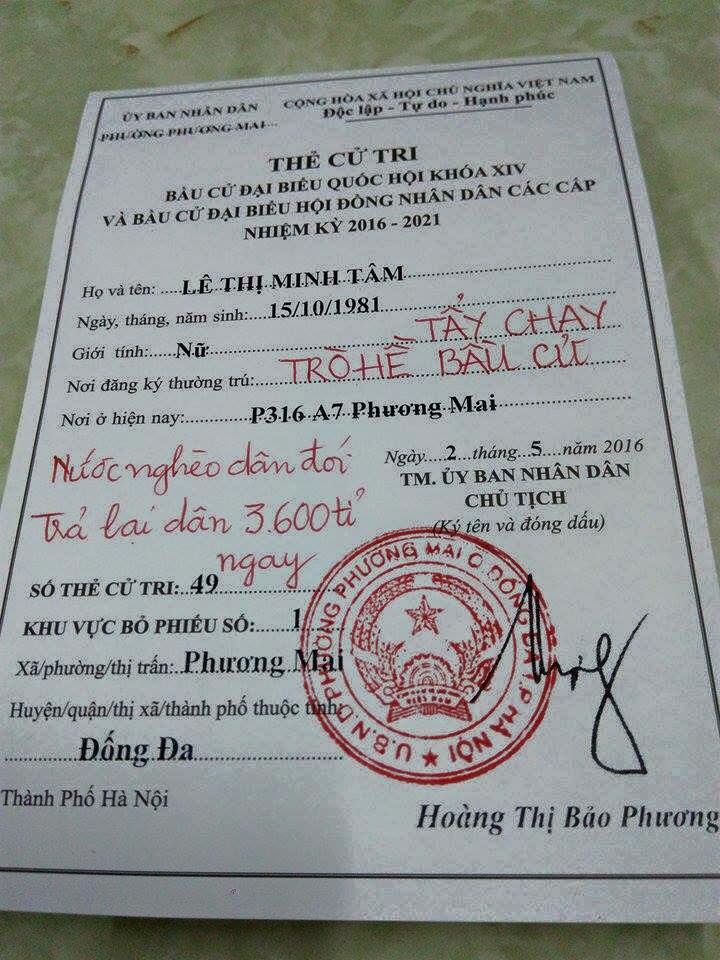 ỦY BAN NHÂN DÂN
PHƯỜNG PHƯƠNG MAI...
CỘNG HÒA XÃ HỘI CHỦ NGHĨA VIỆT NAM
Độc lập - Tự do - Hạnh phúc
THẺ CỬ TRI
BẦU CỬ ĐẠI BIỂU QUỐC HỘI KHÓA XIV
VÀ BẦU CỬ ĐẠI BIỂU HỘI ĐỒNG NHÂN DÂN CÁC CẤP
NHIỆM KỲ 2016 - 2021
Họ và tên: LÊ THỊ MINH TÂM
Ngày, tháng, năm sinh: 15/10/1981
Giới tính: Nữ
TẨY CHAY
Nơi đăng ký thường trú:
TRÒ HỀ BẦU CỬ
Nơi ở hiện nay: P316 A7 Phương Mai
Nước nghèo dân đói
Trả lại dân 3.600 tỉ
ngay
Ngày 2 tháng 5 năm 2016
TM. ỦY BAN NHÂN DÂN
CHỦ TỊCH
(Ký tên và đóng dấu)
SỐ THẺ CỬ TRI: 49
KHU VỰC BỎ PHIẾU SỐ: 1
Xã/phường/thị trấn: Phương Mai
Huyện/quận/thị xã/thành phố thuộc tỉnh:
Đống Đa
Thành Phố Hà Nội
U.B.N.D PHƯỜNG PHƯƠNG MAI Q ĐỐNG ĐA T.P HÀ NỘI
Hoàng Thị Bảo Phương